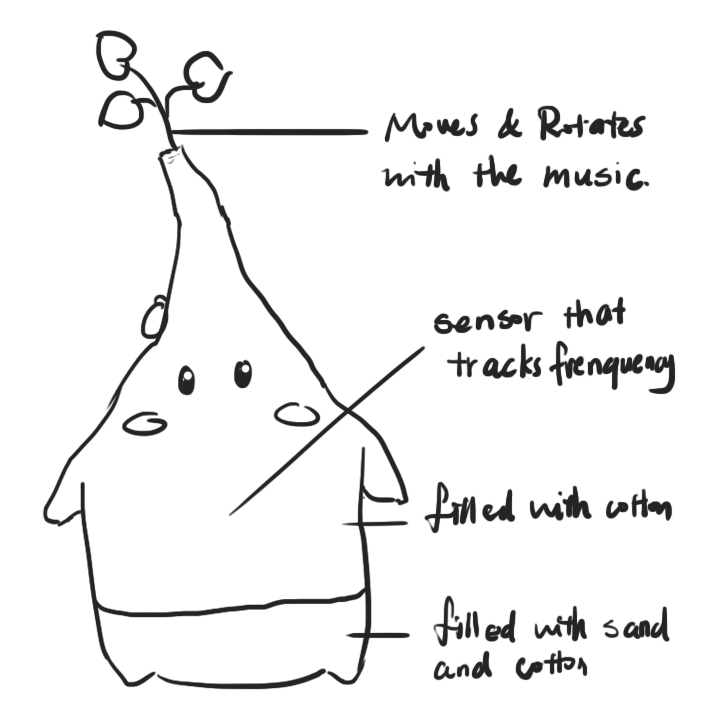 Moves & Rotates
with the music.
sensor that
tracks frenquency
filled with cotton
filled with sand
and cotton